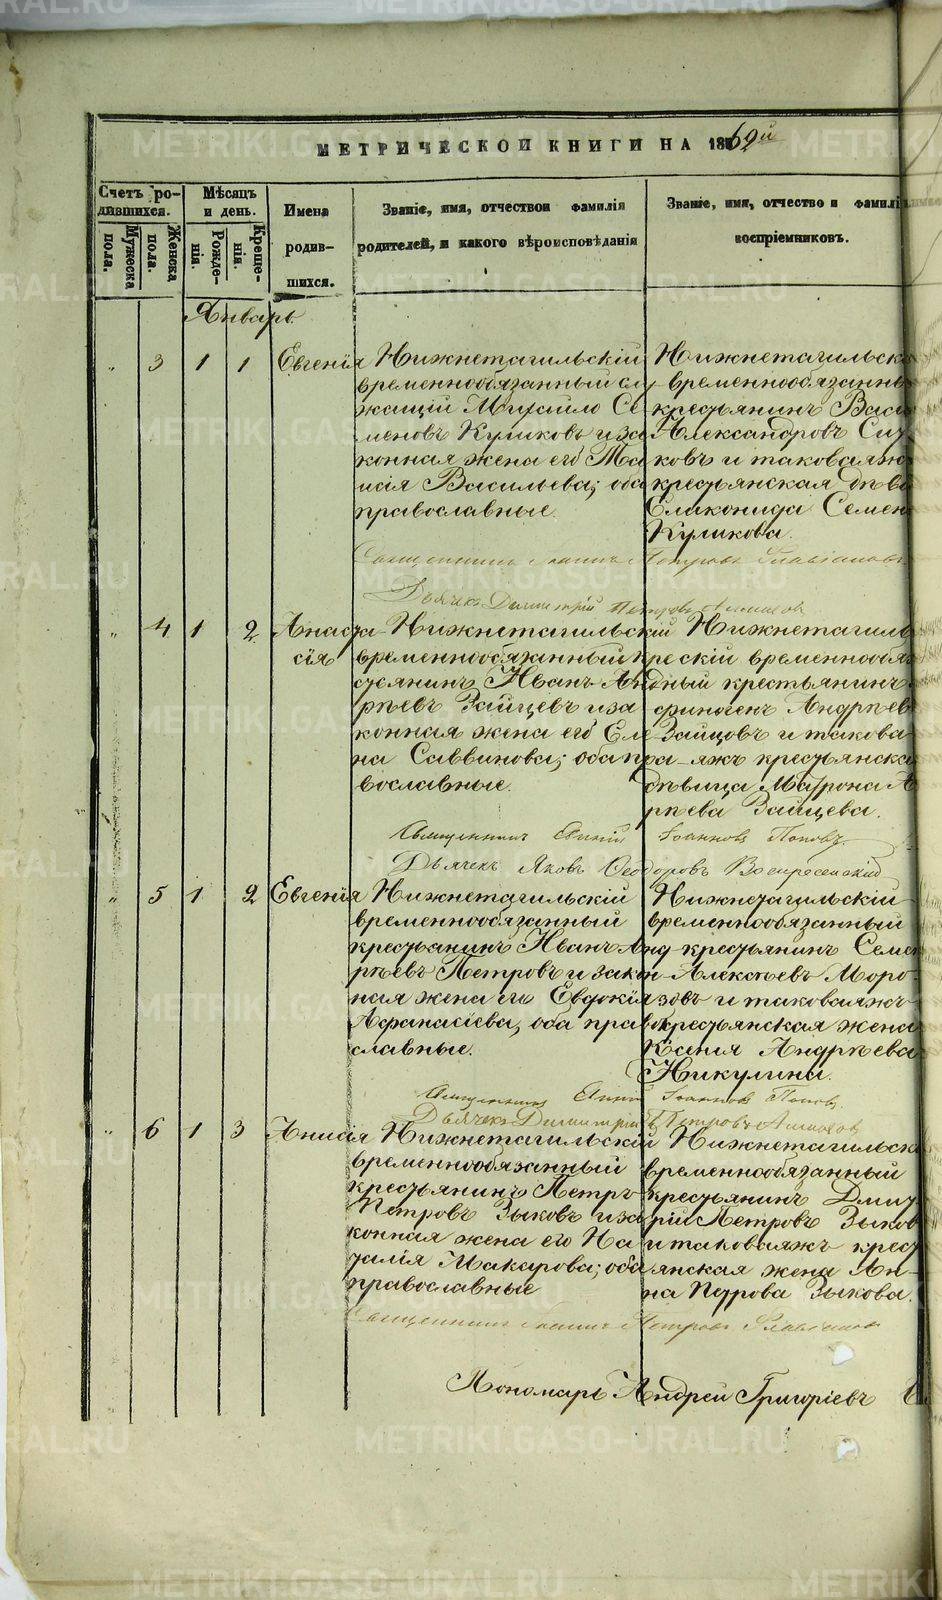 МЕТРИЧЕСКОЙ КНИГИ НА 1869й
Счетъ ро-
дившихся.
Мужеска
пола.
Женска
пола.
Мѣсяцъ
и день.
Рожде-
нія.
Креще-
нія.
Имена
родив-
шихся.
Званіе, имя, отчество и фамилія
родителей, и какого вѣроисповѣданія
Званіе, имя, отчество и фамилія
воспріемниковъ.
Январь.
" 3 1 1 Евгенія
Нижнетагильскій
временнообязанный слу-
жащій Михайло Се-
меновъ Куликовъ и за
конная жена его Та
исія Васильева; оба
православные.
Нижнетагильск
временнообязанны
крестьянинъ Васи
Александровъ
ковъ и таковаяж
крестьянская дѣви
Еликонида Семен
Куликова.
Священникъ Іоаннъ Петровъ
Дьячекъ Димитрій Петровъ
" 4 1 2 Анаста-
сія
Нижнетагильскій
временнообязанный кре
стьянинъ Иванъ Анд
рѣевъ Зайцевъ и за
конная жена его Еле
на Саввинова; оба пра
вославные.
Нижнетагиль
скій временнообяз
ный крестьянинъ
финогенъ Андрѣев
Зайцовъ и такова
яжъ крестьянска
дѣвица Матрона А
рѣева Зайцева.
Священникъ Іоанновъ Поповъ.
Дьячекъ Яковъ Ѳеодоровъ Воскресенскій
" 5 1 2 Евгенія
Нижнетагильскій
временнообязанный
крестьянинъ Иванъ Анд
рѣевъ Петровъ и закон
ная жена его Евдокія
Афанасіева, оба право
славные.
Нижнетагильскій
временнообязанный
крестьянинъ Семен
Алексѣевъ Моро-
зовъ и таковаяжъ
крестьянская жена
Ксенія Андрѣева
Никулина.
Священникъ Іоанновъ Поповъ
Дьячекъ Димитрій Петровъ
" 6 1 3 Анисія
Нижнетагильскій
временнообязанный
крестьянинъ Петръ
Петровъ Зыковъ и за
конная жена его На
талія Макарова; оба
православные
Нижнетагильск
временнообязанный
крестьянинъ Дмит
рій Петровъ Зыков
и таковаяжъ крест
янская жена Ан-
на Петрова Зыкова.
Священникъ Іоаннъ Петровъ
Пономарь Андрей Григоріевъ